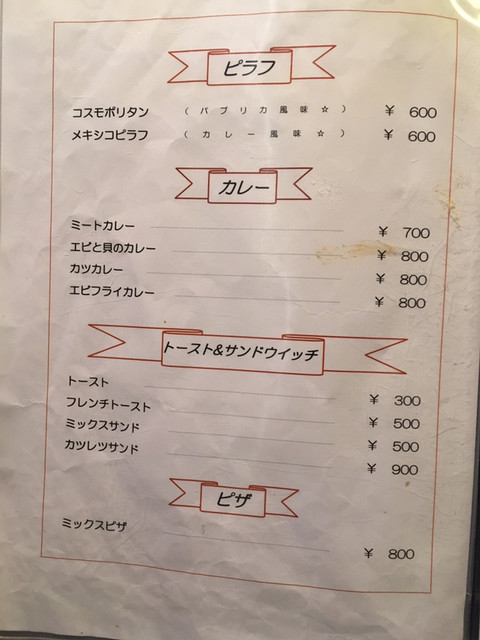 ピラフ
コスモポリタン （パプリカ風味☆） ￥ 600
メキシコピラフ （カレー風味☆） ￥ 600
カレー
ミートカレー ￥ 700
エビと貝のカレー ￥ 800
カツカレー ￥ 800
エビフライカレー ￥ 800
トースト&サンドウイッチ
トースト ￥ 300
フレンチトースト ￥ 500
ミックスサンド ￥ 500
カツレツサンド ￥ 900
ピザ
ミックスピザ ￥ 800